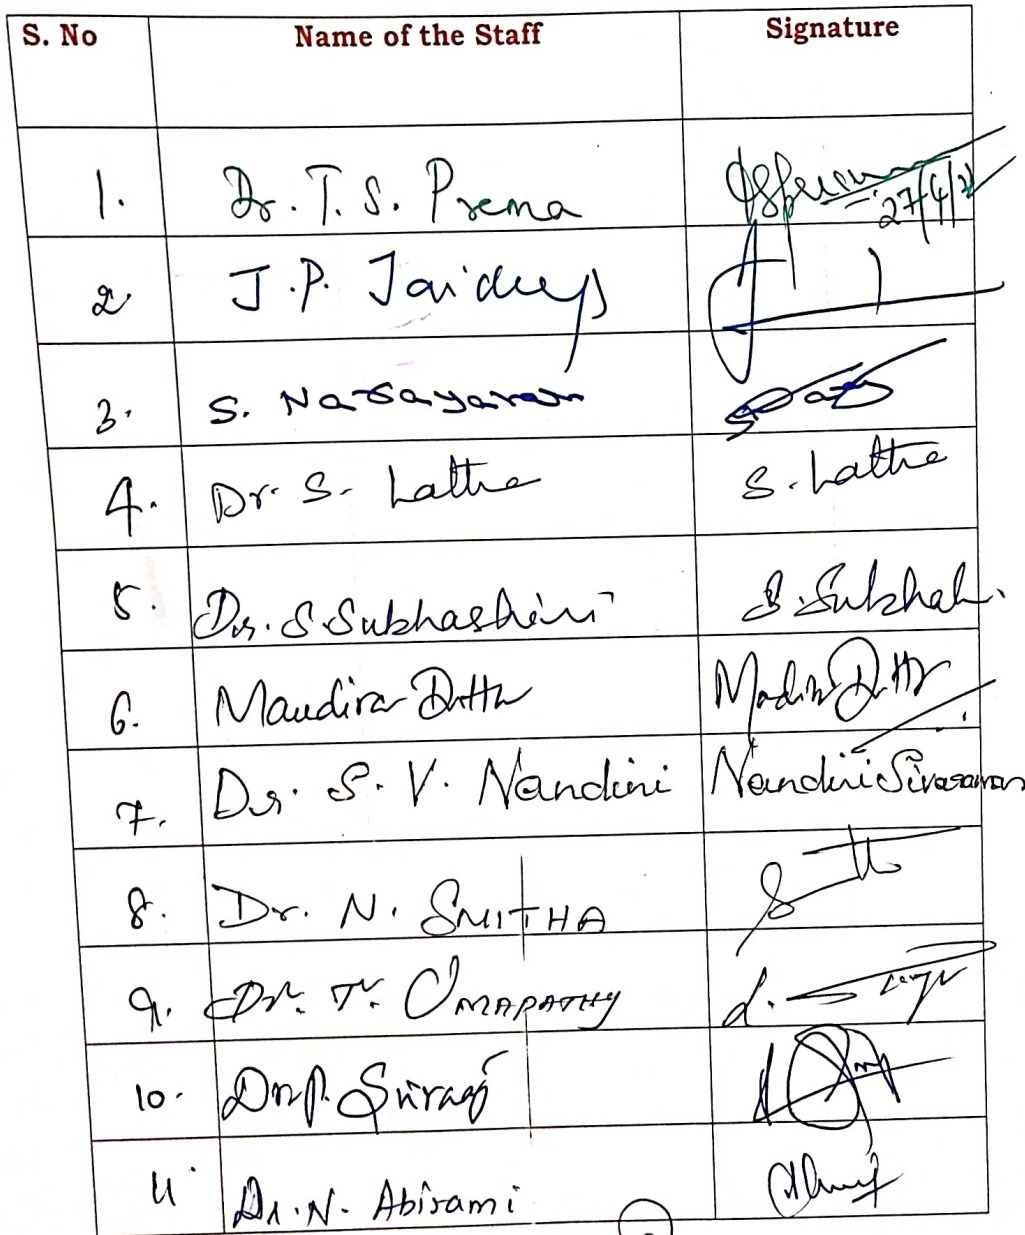 S. No Name of the Staff Signature
1. Dr. T. S. Prema 27/4/21
2 J.P. Jaideep
3. S. Narayanan
4. Dr. S. Latha S. Latha
5. Dr. S. Subhashini S. Subhah.
6. Mandira Dutta Mandira Dutta
7. Dr. S. V. Nandini Nandini Sivasaravanan
8. Dr. N. SMITHA
9. Dr. T. UMAPATHY
10. Dr. P. Suraj
11 Dr. N. Abirami